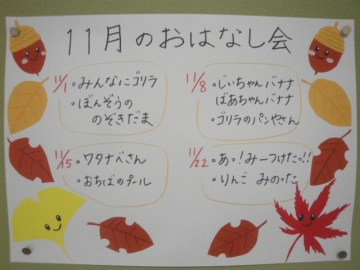 11月のおはなし会
11/1 ・みんなにゴリラ
・ぼんぞうの
のぞきだま
11/8 ・じいちゃんバナナ
ばあちゃんバナナ
・ゴリラのパンやさん
11/15 ・ワタナベさん
・おちばのプール
11/22 ・あっ!みーつけたっ!!
・りんご みのった